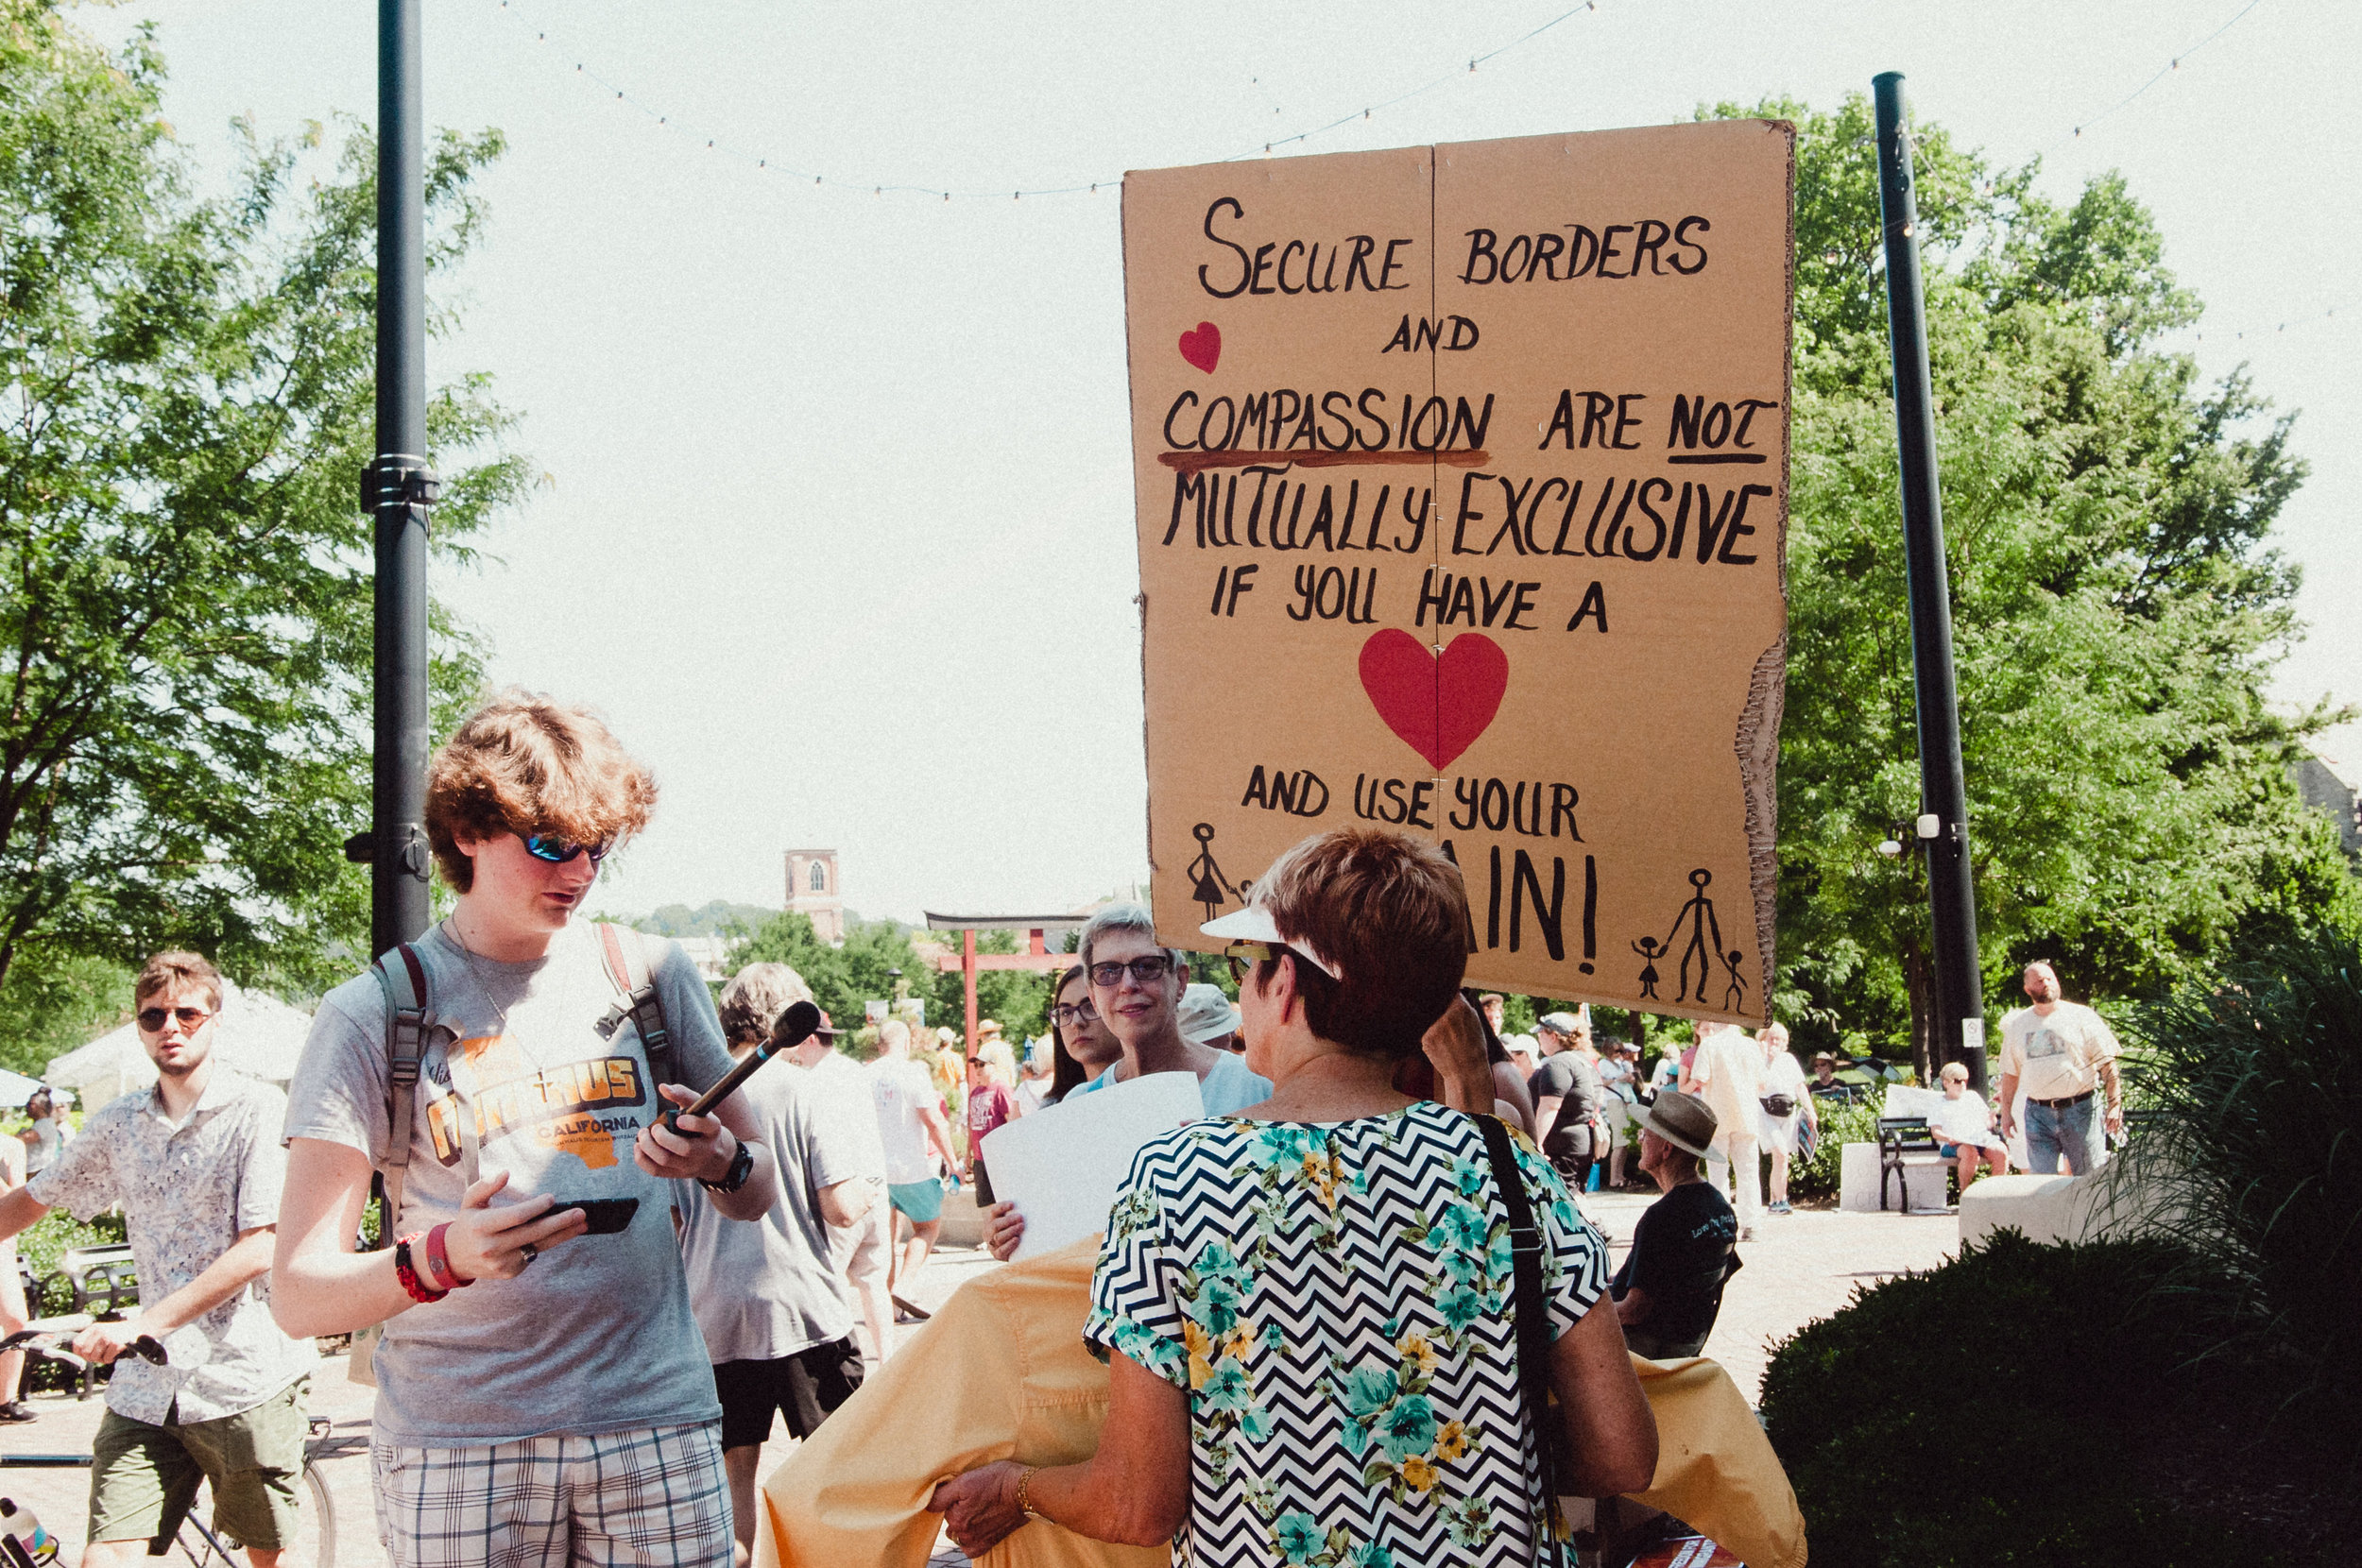 SECURE BORDERS
AND
COMPASSION ARE NOT
MUTUALLY EXCLUSIVE
IF YOU HAVE A
AND USE YOUR
AIN!
CALIFORNIA